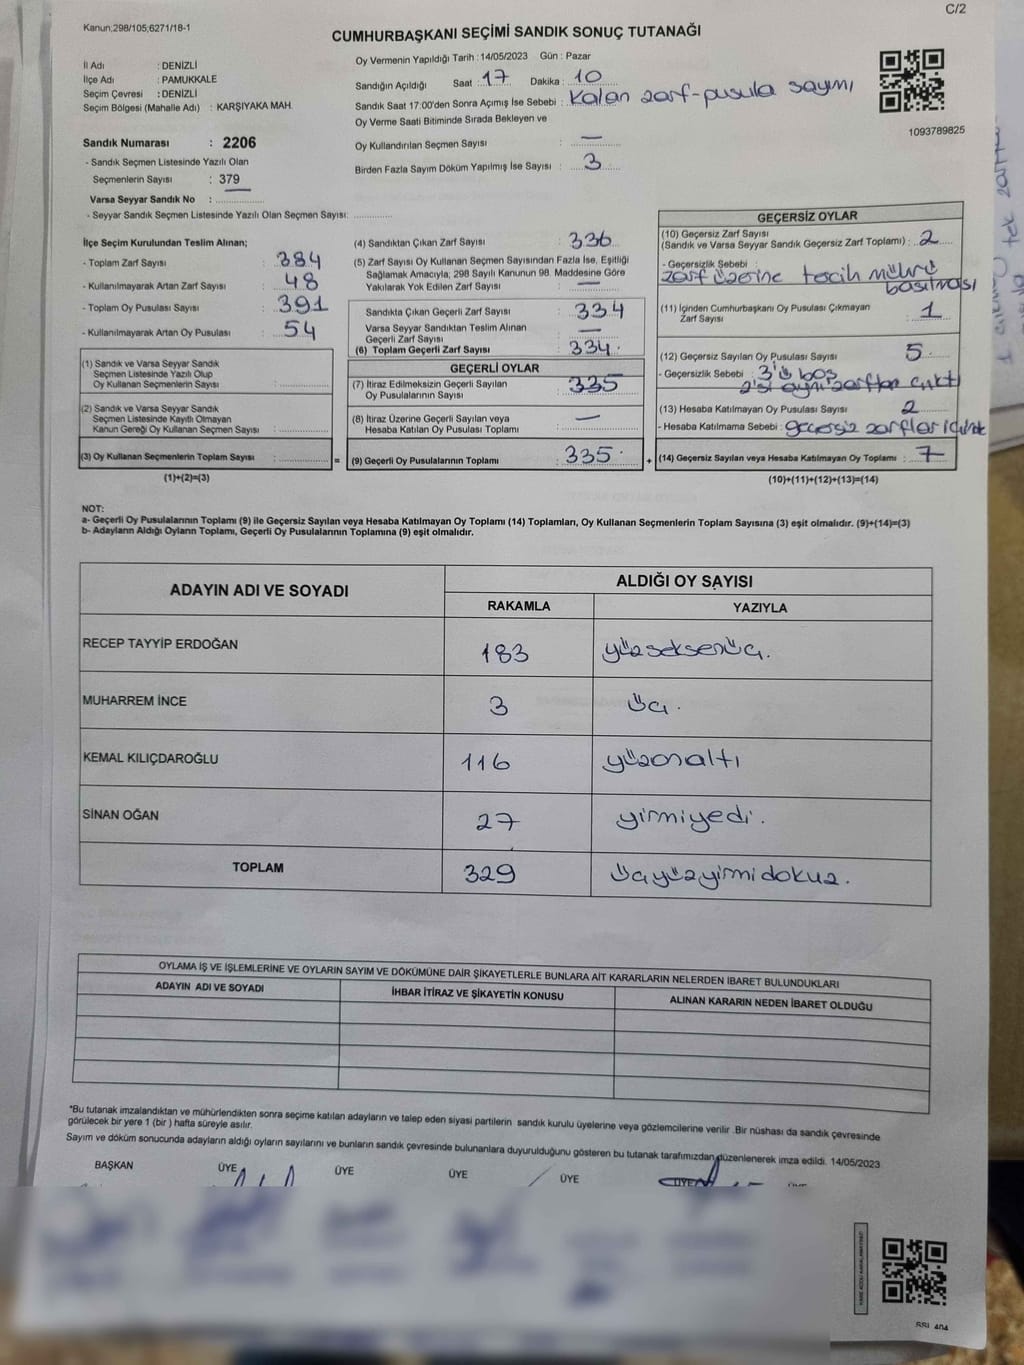 C/2
Kanun;298/105;6271/18-1
CUMHURBAŞKANI SEÇİMİ SANDIK SONUÇ TUTANAĞI
İl Adı : DENİZLİ
İlçe Adı : PAMUKKALE
Seçim Çevresi : DENİZLİ
Seçim Bölgesi (Mahalle Adı) : KARŞIYAKA MAH.
Oy Vermenin Yapıldığı Tarih : 14/05/2023 Gün : Pazar
Sandığın Açıldığı Saat : 17 Dakika : 10
Sandık Saat 17:00'den Sonra Açmış İse Sebebi : Kalan zarf-pusula sayımı
Oy Verme Saati Bitiminde Sırada Bekleyen ve
Oy Kullandırılan Seçmen Sayısı : —
Birden Fazla Sayım Döküm Yapılmış İse Sayısı : 3
1093789825
Sandık Numarası : 2206
- Sandık Seçmen Listesinde Yazılı Olan
Seçmenlerin Sayısı : 379
Varsa Seyyar Sandık No :
- Seyyar Sandık Seçmen Listesinde Yazılı Olan Seçmen Sayısı:
İlçe Seçim Kurulundan Teslim Alınan;
- Toplam Zarf Sayısı : 384
- Kullanılmayarak Artan Zarf Sayısı : 48
- Toplam Oy Pusulası Sayısı : 391
- Kullanılmayarak Artan Oy Pusulası : 54
(1) Sandık ve Varsa Seyyar Sandık
Seçmen Listesinde Yazılı Olup
Oy Kullanan Seçmenlerin Sayısı :
(2) Sandık ve Varsa Seyyar Sandık
Seçmen Listesinde Kayıtlı Olmayan
Kanun Gereği Oy Kullanan Seçmen Sayısı :
(3) Oy Kullanan Seçmenlerin Toplam Sayısı : =
(1)+(2)=(3)
(4) Sandıktan Çıkan Zarf Sayısı : 336
(5) Zarf Sayısı Oy Kullanan Seçmen Sayısından Fazla İse, Eşitliği
Sağlamak Amacıyla; 298 Sayılı Kanunun 98. Maddesine Göre
Yakılarak Yok Edilen Zarf Sayısı : —
Sandıkta Çıkan Geçerli Zarf Sayısı : 334
Varsa Seyyar Sandıktan Teslim Alınan
Geçerli Zarf Sayısı : —
(6) Toplam Geçerli Zarf Sayısı : 334
GEÇERLİ OYLAR
(7) İtiraz Edilmeksizin Geçerli Sayılan
Oy Pusulalarının Sayısı : 335
(8) İtiraz Üzerine Geçerli Sayılan veya
Hesaba Katılan Oy Pusulası Toplamı : —
(9) Geçerli Oy Pusulalarının Toplamı : 335 +
GEÇERSİZ OYLAR
(10) Geçersiz Zarf Sayısı
(Sandık ve Varsa Seyyar Sandık Geçersiz Zarf Toplamı) : 2
- Geçersizlik Sebebi :
zarf üzerine tercih mührü
basılması
(11) İçinden Cumhurbaşkanı Oy Pusulası Çıkmayan
Zarf Sayısı : 1
(12) Geçersiz Sayılan Oy Pusulası Sayısı : 5
- Geçersizlik Sebebi : 3'ü boş
2'si aynı zarftan çıktı
(13) Hesaba Katılmayan Oy Pusulası Sayısı : 2
- Hesaba Katılmama Sebebi : geçersiz zarflar içinde
(14) Geçersiz Sayılan veya Hesaba Katılmayan Oy Toplamı : 7
(10)+(11)+(12)+(13)=(14)
NOT:
a- Geçerli Oy Pusulalarının Toplamı (9) ile Geçersiz Sayılan veya Hesaba Katılmayan Oy Toplamı (14) Toplamları, Oy Kullanan Seçmenlerin Toplam Sayısına (3) eşit olmalıdır. (9)+(14)=(3)
b- Adayların Aldığı Oyların Toplamı, Geçerli Oy Pusulalarının Toplamına (9) eşit olmalıdır.
ADAYIN ADI VE SOYADI ALDIĞI OY SAYISI
RAKAMLA YAZIYLA
RECEP TAYYİP ERDOĞAN 183 yüzseksenüç.
MUHARREM İNCE 3 üç.
KEMAL KILIÇDAROĞLU 116 yüzonaltı
SİNAN OĞAN 27 yirmiyedi.
TOPLAM 329 üçyüzyirmidokuz.
OYLAMA İŞ VE İŞLEMLERİNE VE OYLARIN SAYIM VE DÖKÜMÜNE DAİR ŞİKAYETLERLE BUNLARA AİT KARARLARIN NELERDEN İBARET BULUNDUKLARI
ADAYIN ADI VE SOYADI İHBAR İTİRAZ VE ŞİKAYETİN KONUSU ALINAN KARARIN NEDEN İBARET OLDUĞU
*Bu tutanak imzalandıktan ve mühürlendikten sonra seçime katılan adayların ve talep eden siyasi partilerin sandık kurulu üyelerine veya gözlemcilerine verilir .Bir nüshası da sandık çevresinde
görülecek bir yere 1 (bir ) hafta süreyle asılır.
Sayım ve döküm sonucunda adayların aldığı oyların sayılarını ve bunların sandık çevresinde bulunanlara duyurulduğunu gösteren bu tutanak tarafımızdan düzenlenerek imza edildi. 14/05/2023
BAŞKAN ÜYE ÜYE ÜYE ÜYE ÜYE